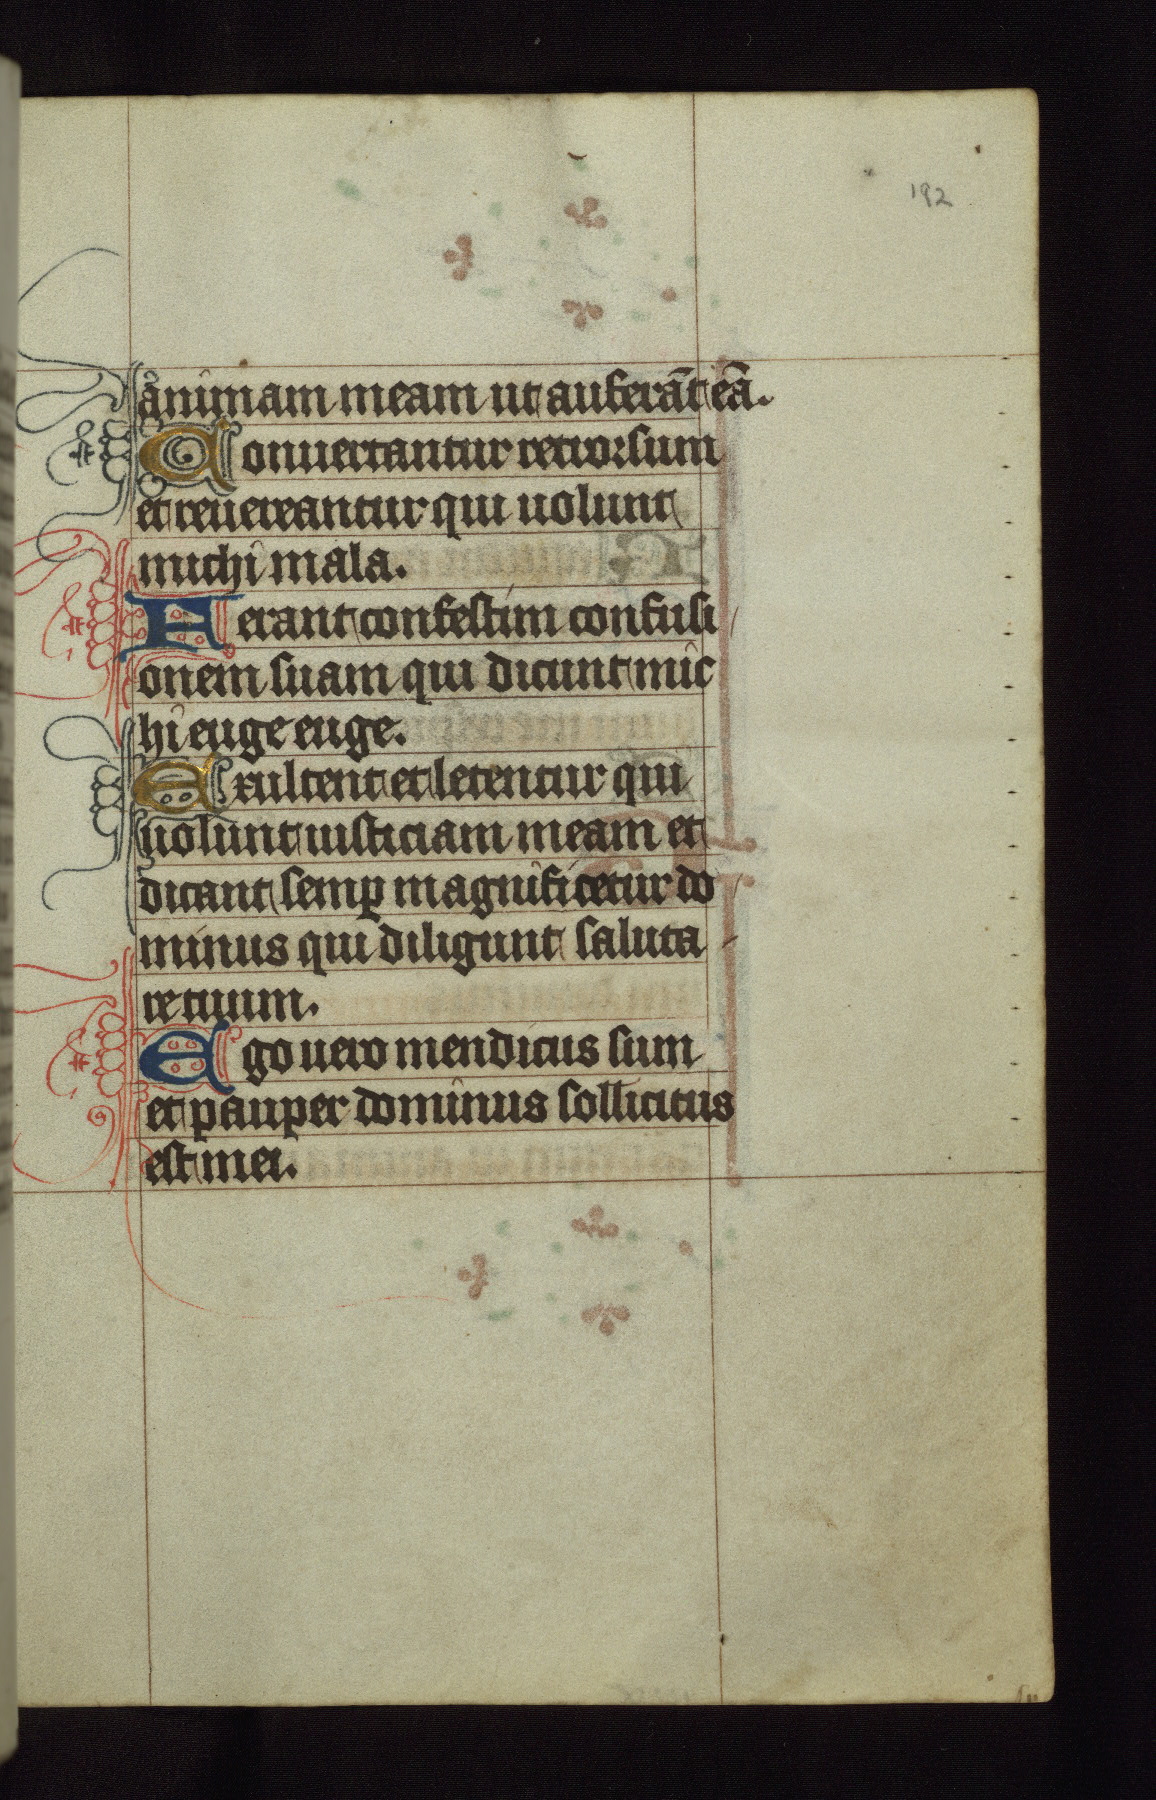 192
animam meam ut auferāt eā.
Conuertantur retrorsum
et reuereantur qui uolunt
michi mala.
Ferant confestim confusi
onem suam qui dicunt mic
hi euge euge.
Exultent et letentur qui
uolunt iusticiam meam et
dicant semp magnificetur do
minus qui diligunt saluta
re tuum.
Ego uero mendicus sum
et pauper dominus sollicitus
est mei.